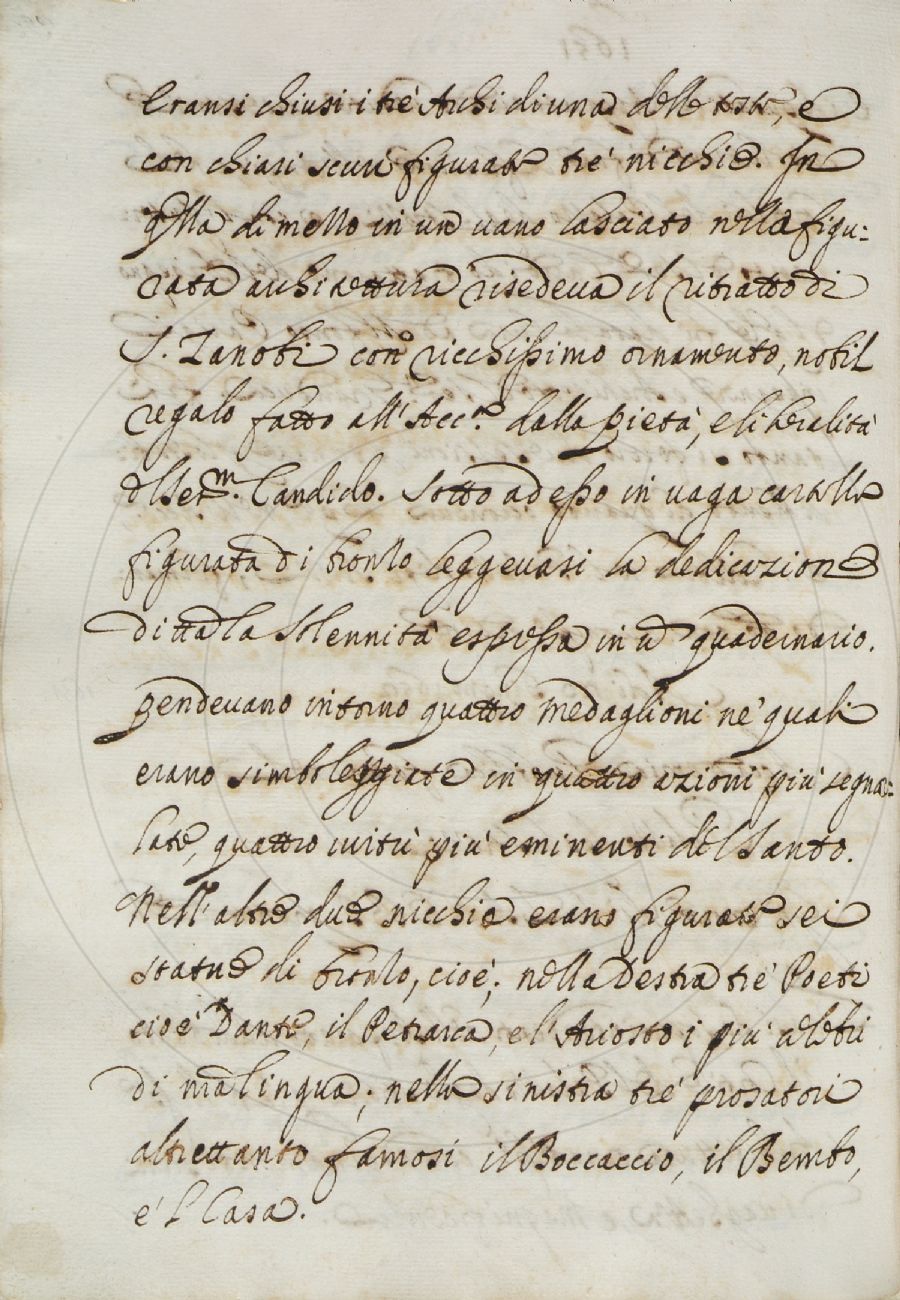 Eransi chiusi i trè Archi di una delle teste, e
con chiari scuri figurate trè nicchie. In
qlla di mezzo in un vano lasciato nella figu:
rata architettura risedeva il ritratto di
S. Zanobi con ricchissimo ornamento, nobil
regalo fatto all'Acc.ª dalla pietà, e liberalità
del Ser.m Candido. Sotto ad esso in vaga cartella
figurata di bronzo leggevasi la dedicazione
di tta la solennità espressa in u quadernario.
pendevano intorno quattro medaglioni ne' quali
erano simboleggiate in quattro azioni più segna:
late, quattro virtù più eminenti del Santo.
Nell'altre due nicchie erano figurate sei
statue di bronzo, cioè; nella destra trè Poeti
cioè Dante, il Petrarca, e l'Ariosto i più celebri
di nra lingua; nella sinistra trè prosatori
altrettanto famosi il Boccaccio, il Bembo,
e 'l Casa.